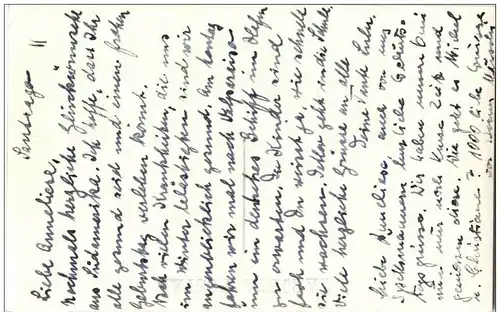 Santiago
Liebe Anneliese,
Nochmals herzliche Glückwünsche
aus Südamerika. Ich hoffe, dass Ihr
alle gesund seid und einen frohen
Geburtstag verleben könnt.
Nach vielen Krankheiten, die uns
im Winter belästigten sind wir
augenblicklich gesund. Am Montag
fahren wir mal nach Valparaiso
um ein deutsches Schiff im Hafen
zu erwarten. Die Kinder sind
froh und Du wirst ja, wie schnell
sie wachsen. geht in die Schule.
Viele herzliche Grüsse an alle
Deine Tante
Liebe Anneliese, auch von mir
herzliche Geburts-
tagsgrüsse. Wir haben nun bei
uns nur noch kurze Zeit und
geniessen diese. Wie geht es Michel
u. Christiane? 1000 liebe Grüsse
von Deinem